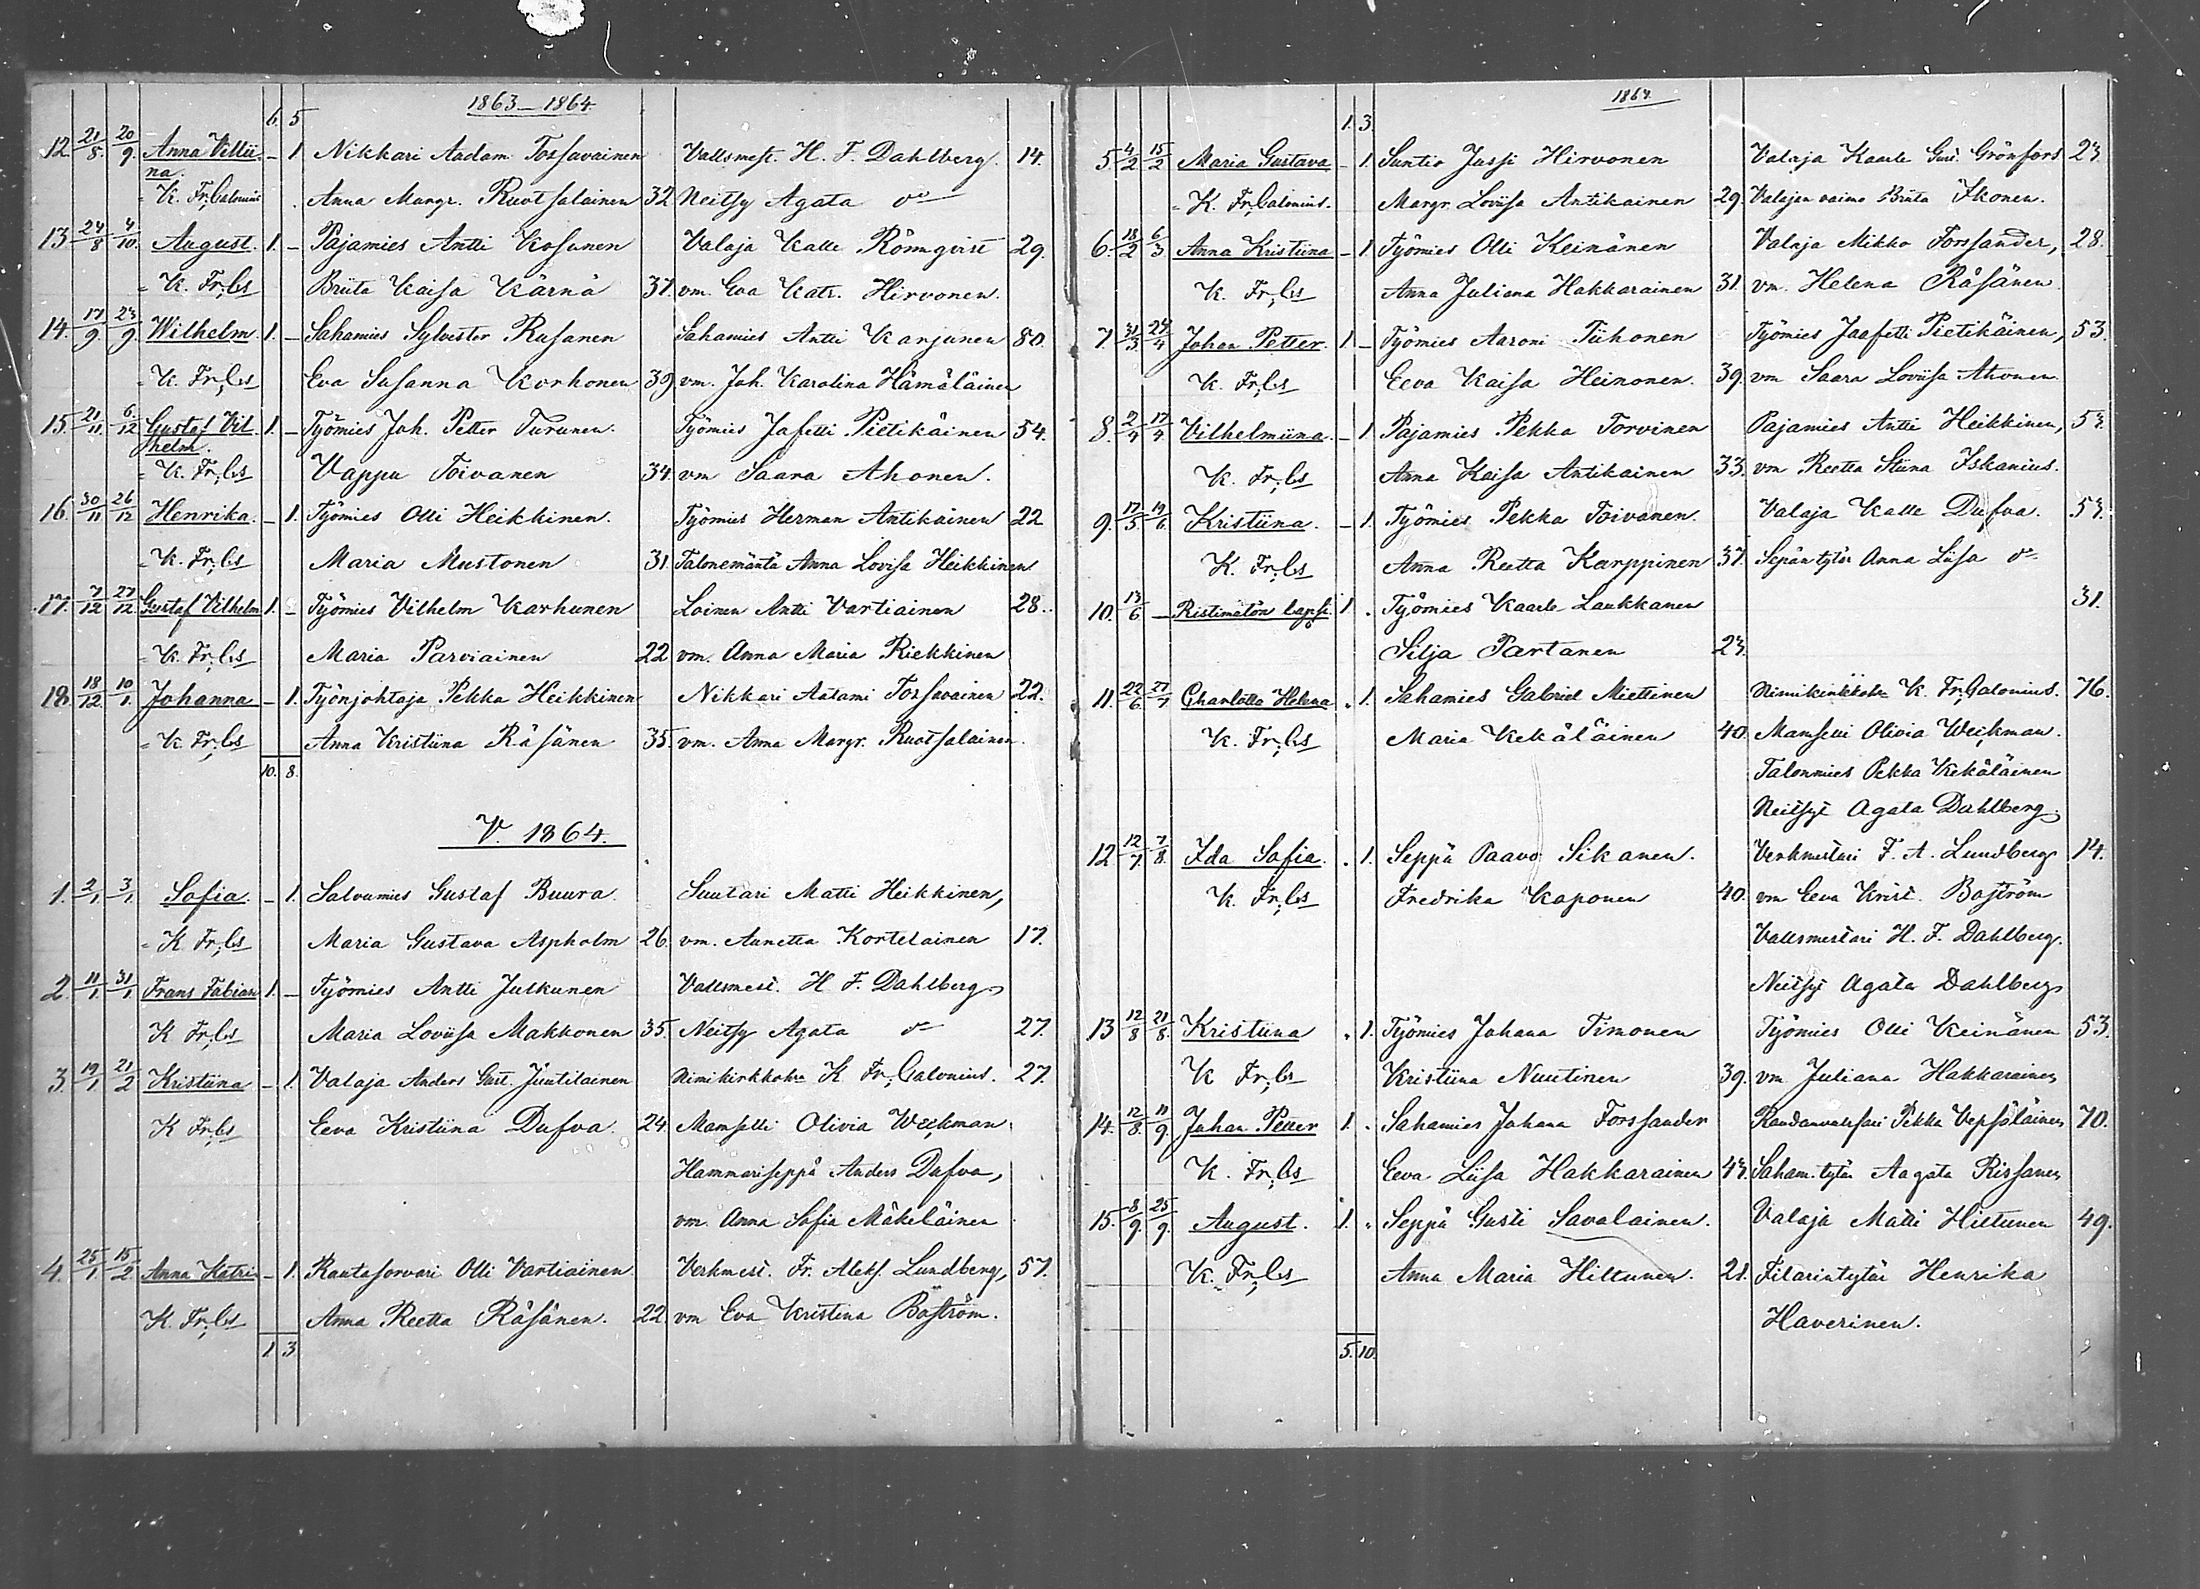 1863–1864.
6. 5
12. 21/8. 20/9. Anna Vilhii- – 1. Nikkari Aadam Tossavainen Vallsmest. H. F. Dahlberg. 14.
na.
= K. Fr. Calonius Anna Margr. Ruotsalainen 32. Neitsy Agata do
13. 24/8 4/10. August. 1. – Pajamies Antti Kosunen Valaja Kalle Rönnqvist 29.
= K. Fr. Cs Briita Kaisa Kärnä 37. vm. Eva Katr. Hirvonen.
14. 17/9. 23/9. Wilhelm. 1. – Sahamies Sylvester Rusanen Sahamies Antti Karjunen 80.
= K. Fr. Cs Eva Susanna Korhonen 39. vm. Joh. Karolina Hämäläinen
15. 21/11. 6/12 Gustaf Vil 1. – Työmies Joh. Petter Turunen. Työmies Jafetti Pietikäinen 54.
helm.
= K. Fr. Cs Vappu Toivanen 34. vm Saara Ahonen.
16. 30/11 26/12 Henrika. – 1. Työmies Olli Heikkinen. Työmies Herman Antikainen 22
= K. Fr. Cs Maria Mustonen 31. Talonemäntä Anna Lovisa Heikkinen
17. 7/12 27/12. Gustaf Vilhelm 1. – Työmies Vilhelm Karhunen Loinen Antti Vartiainen 28.
= K. Fr. Cs Maria Parviainen 22 vm. Anna Maria Riekkinen
18. 18/12 10/1. Johanna – 1. Työnjohtaja Pekka Heikkinen Nikkari Aatami Tossavainen 22.
= K. Fr. Cs Anna Kristiina Räsänen 35. vm. Anna Margr. Ruotsalainen.
10. 8.
V. 1864.
1. 2/1 3/1 Sofia. – 1. Salvumies Gustaf Buura. Suutari Matti Heikkinen,
= K Fr. Cs Maria Gustava Aspholm 26. vm. Annetta Kortelainen 17.
2. 11/1. 31/1 Frans Fabian 1. – Työmies Antti Julkunen Vallsmest. H F. Dahlberg
K Fr. Cs Maria Loviisa Makkonen 35. Neitsy Agata do 27.
3. 19/1 21/2 Kristiina – 1. Valaja Anders Gust. Juutilainen Nimikirkkohr K Fr. Calonius. 27.
K Fr. Cs Eeva Kristiina Dufva. 24. Mamselli Olivia Weikman.
Hammariseppä Anders Dufva,
vm. Anna Sofia Mäkeläinen
4. 25/1 15/2. Anna Katri – 1. Rautasorvari Olli Vartiainen Verkmest. Fr. Aleks. Lundberg, 57.
K. Fr. Cs Anna Reetta Räsänen. 22. vm Eva Kristina Boström.
1. 3.
1864.
1. 3.
5. 4/2 15/2 Maria Gustava – 1. Suntio Jussi Hirvonen Valaja Kaarle Gust. Grönfors 24.
= K. Fr. Calonius. Margr. Loviisa Antikainen 29. Valajan vaimo Briita Ikonen.
6. 18/2 6/3 Anna Kristiina – 1. Työmies Olli Keinänen Valaja Mikko Forssander, 28.
K. Fr. Cs Anna Juliana Hakkarainen 31. vm. Helena Räsänen.
7. 31/3 24/4 Johan Petter. 1. – Työmies Aaroni Tiihonen Työmies Jaafetti Pietikäinen, 53.
K. Fr. Cs Eeva Kaisa Heinonen. 39. vm Saara Loviisa Ahonen.
8. 2/4 17/4 Vilhelmiina. – 1. Pajamies Pekka Torvinen Pajamies Antti Heikkinen, 54.
K. Fr. Cs Anna Kaisa Antikainen 33. vm Reetta Stiina Iskanius.
9. 17/5 19/6. Kristiina. – 1. Työmies Pekka Toivanen. Valaja Kalle Dufva. 54.
K. Fr. Cs Anna Reetta Karppinen 37. Sepän tytär Anna Liisa do
10. 13/6 – Ristimätön lapsi. 1. . Työmies Kaarle Laukkanen 31.
Silja Partanen 24.
11. 22/6 27/7 Charlotta Helena . 1. Sahamies Gabriel Miettinen Nimikirkkohr K. Fr. Calonius. 76.
K. Fr. Cs Maria Kekäläinen 40. Mamselli Olivia Weikman.
Talonmies Pekka Kekäläinen
Neitsyt Agata Dahlberg
12. 12/7. 7/8. Ida Sofia. . 1. Seppä Paavo Sikanen. Verkmestari F. A. Lundberg 14.
K. Fr. Cs Fredrika Kaponen 40. vm Eeva Krist. Boström
Vallsmestari H. F. Dahlberg.
Neitsyt Agata Dahlberg
13 12/8 21/8. Kristiina . 1. Työmies Johana Timonen Työmies Olli Keinänen 53.
K Fr. Cs Kristiina Nuutinen 39. vm Juliana Hakkarainen
14. 12/8. 11/9. Johan Petter 1. . Sahamies Johana Forssander Pekka Vepsäläinen 70.
K. Fr. Cs Eeva Liisa Hakkarainen 44. Saham. tytär Aagata Rissanen
15. 8/9. 25/9. August. 1. . Seppä Gusti Savolainen. Valaja Matti Hiltunen 49.
K. Fr. Cs Anna Maria Hiltunen. 21. Filarintytär Henrika
Haverinen.
5. 10.